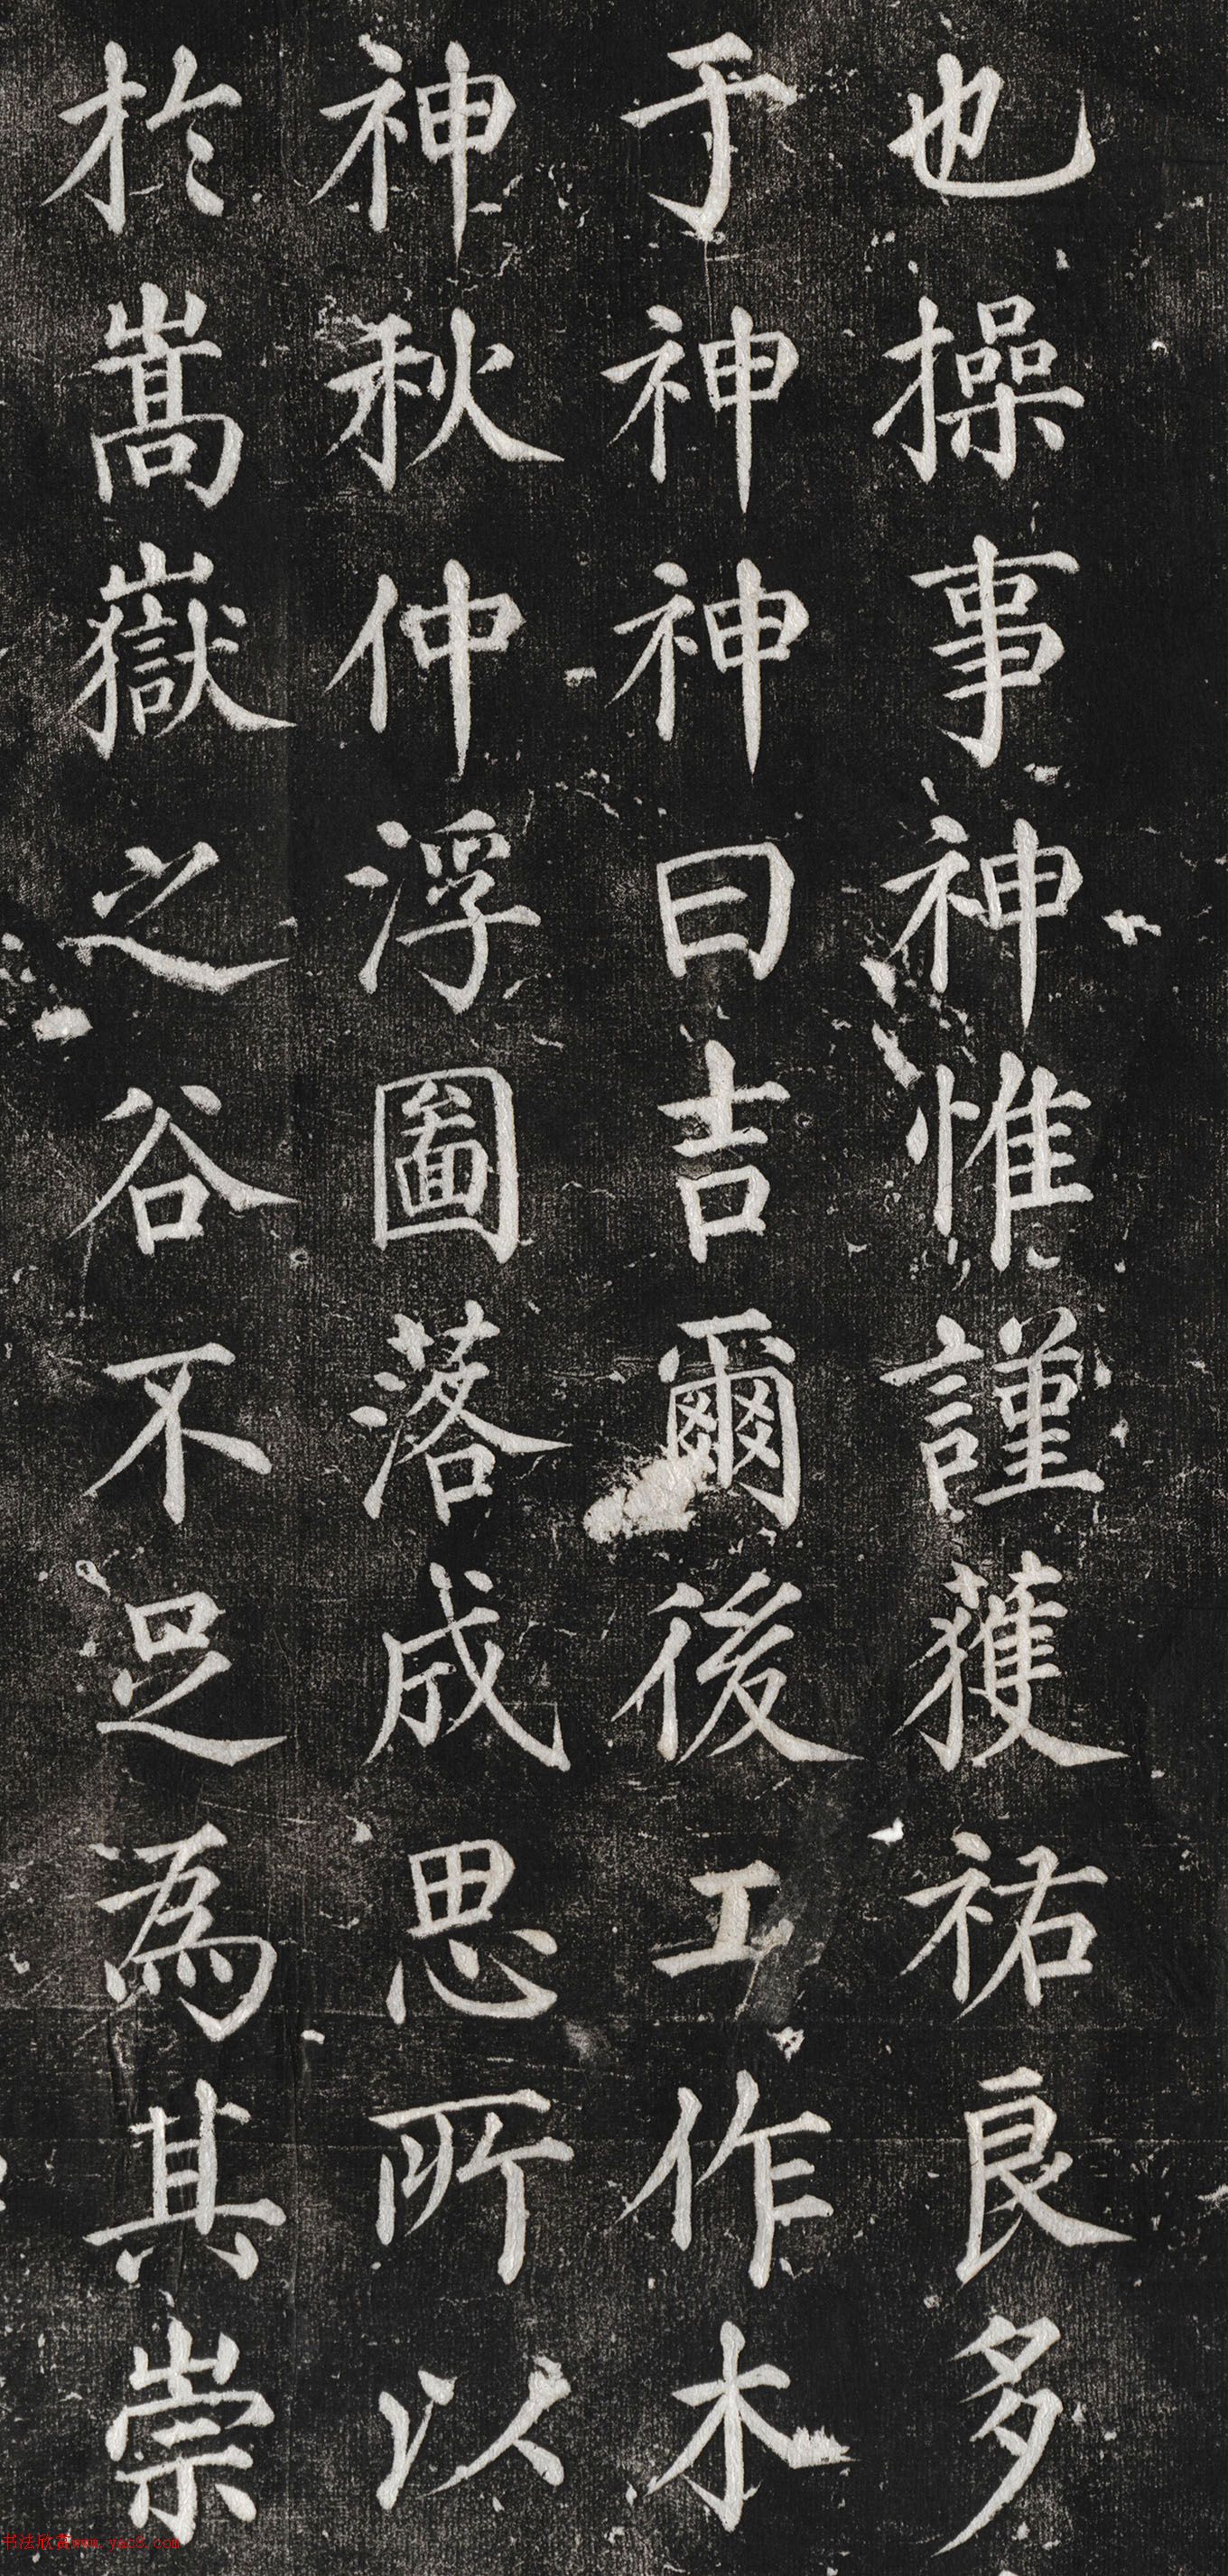 也操事神惟謹獲祐良多
于神神曰吉爾後工作木
神秋仲浮圖落成思所以
於嵩嶽之谷不足為其崇
书法欣赏www.yac8.com